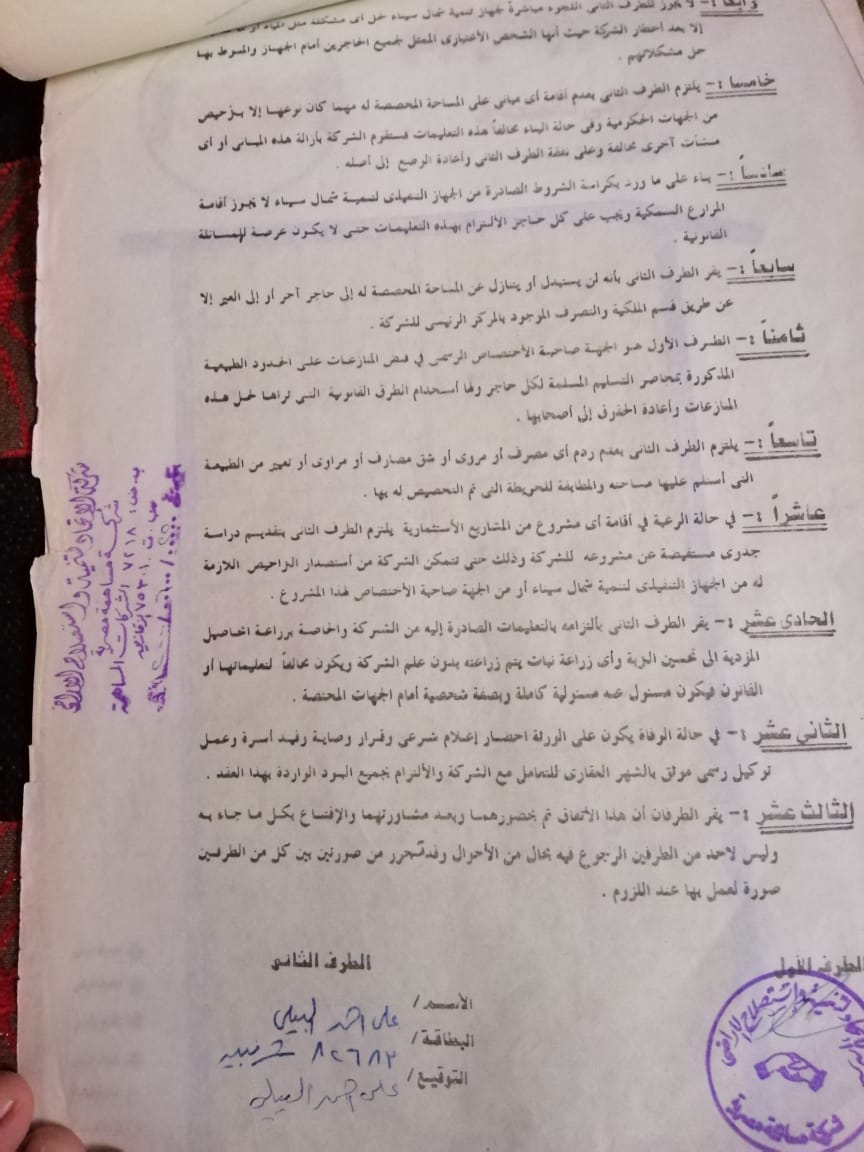 رابعاً :- لا يجوز للطرف الثانى اللجوء مباشرة لجهاز تنمية شمال سيناء لحل أى مشكلة مثل المياه أو
إلا بعد أخطار الشركة حيث أنها الشخص الأعتبارى الممثل لجميع الحاجزين أمام الجهاز والمنوط بها
حل مشكلاتهم .
خامسا :- يلتزم الطرف الثانى بعدم أقامة أى مبانى على المساحة المخصصة له مهما كان نوعها إلا بترخيص
من الجهات الحكومية وفى حالة البناء مخالفاً هذه التعليمات فستقوم الشركة بأزالة هذه المبانى أو أى
منشآت أخرى مخالفة وعلى نفقة الطرف الثانى وأعادة الوضع إلى أصله .
سادساً :- بناء على ما ورد بكراسة الشروط الصادرة من الجهاز التنفيذى لتنمية شمال سيناء لا يجوز أقامة
المزارع السمكية ويجب على كل حاجز الألتزام بهذه التعليمات حتى لا يكون عرضة للمسائلة
القانونية .
سابعاً :- يقر الطرف الثانى بأنه لن يستبدل أو يتنازل عن المساحة المخصصة له إلى حاجز آخر أو إلى الغير إلا
عن طريق قسم الملكية والتصرف الموجود بالمركز الرئيسى للشركة .
ثامناً :- الطرف الأول هو الجهة صاحبة الأختصاص الرسمى فى فض المنازعات على الحدود الطبيعية
المذكورة بمحاضر التسليم المسلمة لكل حاجز ولها أستخدام الطرق القانونية التى تراها لحل هذه
المنازعات وأعادة الحقوق إلى أصحابها .
تاسعاً :- يلتزم الطرف الثانى بعدم ردم أى مصرف أو مروى أو شق مصارف أو مراوى أو تغيير من الطبيعة
التى أستلم عليها مساحته والمطابقة للخريطة التى تم التخصيص له بها .
عاشراً :- في حالة الرغبة في أقامة أى مشروع من المشاريع الأستثمارية يلتزم الطرف الثانى بتقديم دراسة
جدوى مستفيضة عن مشروعه للشركة وذلك حتى تتمكن الشركة من أستصدار التراخيص اللازمة
له من الجهاز التنفيذى لتنمية شمال سيناء أو من الجهة صاحبة الأختصاص لهذا المشروع .
الحادى عشر :- يقر الطرف الثانى بألتزامه بالتعليمات الصادرة إليه من الشركة والخاصة بزراعة المحاصيل
المؤدية الى تحسين التربة وأى زراعة نبات يتم زراعته بدون علم الشركة ويكون مخالفاً لتعليماتها أو
القانون فيكون مسئول عنه مسئولية كاملة وبصفة شخصية أمام الجهات المختصة .
الثاني عشر :- في حالة الوفاة يكون على الورثة احضار إعلام شرعى وقرار وصاية وقيد أسرة وعمل
توكيل رسمى موثق بالشهر العقارى للتعامل مع الشركة والألتزام بجميع البنود الواردة بهذا العقد .
الثالث عشر :- يقر الطرفان أن هذا الأتفاق تم بحضورهما وبعد مشاورتهما والإقتناع بكل ما جاء به
وليس لاحد من الطرفين الرجوع فيه بحال من الأحوال وقد تحرر من صورتين بين كل من الطرفين
صورة لعمل بها عند اللزوم .
الطرف الأول
الطرف الثانى
الأسم / على احمد
البطاقة / ٨٢٦٨٣
التوقيع / على احمد
شركة الاتحاد لتنمية واستصلاح الاراضى
شركة مساهمة مصرية
ب.ض: ٧٢١٨ الشركات المساهمة
لتنمية واستصلاح الاراضى
شركة مساهمة مصرية